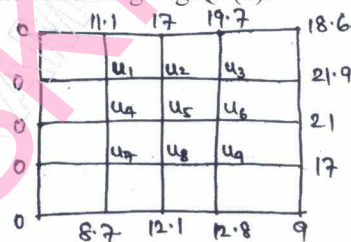 0 11.1 17 19.7 18.6
0 u₁ u₂ u₃ 21.9
0 u₄ u₅ u₆ 21
0 u₇ u₈ u₉ 17
0 8.7 12.1 12.8 9